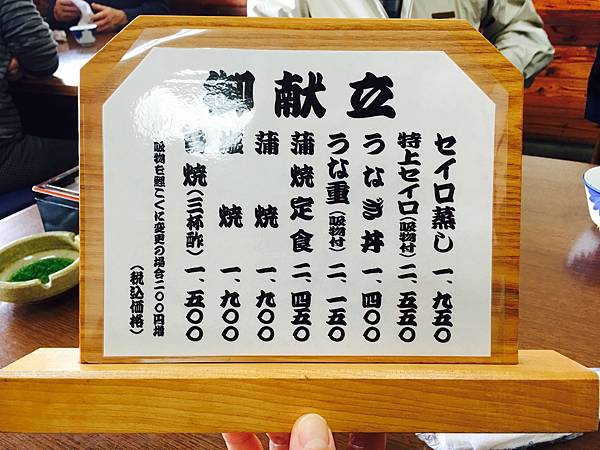 御献立
セイロ蒸し 一、九五〇
特上セイロ(吸物付) 二、五五〇
うなぎ丼 一、四〇〇
うな重(吸物付) 二、一五〇
蒲焼定食 二、四五〇
蒲焼 一、九〇〇
塩焼 一、九〇〇
焼(三杯酢) 一、五〇〇
吸物を鯉こくに変更の場合二〇〇円増
(税込価格)